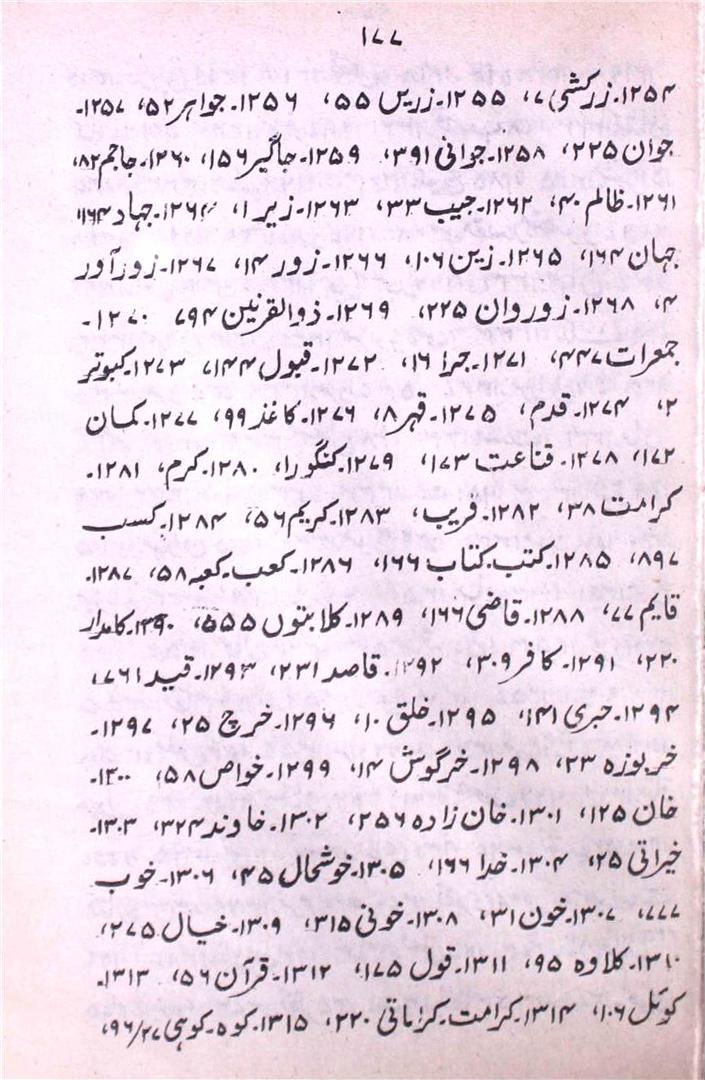 ۱۷۷
۱۲۵۴۔زرکشی ۷، ۱۲۵۵۔زریں ۵۵، ۱۲۵۶۔جواہر ۵۲، ۱۲۵۷۔
جوان ۲۲۵، ۱۲۵۸۔جوانی ۳۹۱، ۱۲۵۹۔جاگیر ۱۵۶، ۱۲۶۰۔جاجم ۸۲،
۱۲۶۱۔ظالم ۴۰، ۱۲۶۲۔جیب ۳۳، ۱۲۶۳۔زیر ۱، ۱۲۶۴۔جہاد ۱۶۴،
جہان ۱۶۴، ۱۲۶۵۔زین ۱۰۶، ۱۲۶۶۔زور ۱۴، ۱۲۶۷۔زورآور
۴، ۱۲۶۸۔زوروان ۲۲۵، ۱۲۶۹۔ذوالقرنین ۷۹۴ ۱۲۷۰۔
جمعرات ۴۴۷، ۱۲۷۱۔حرا ۱۶، ۱۲۷۲۔قبول ۷۱۴۴ ۱۲۷۳۔کبوتر
۲، ۱۲۷۴۔قدم، ۱۲۷۵۔قہر ۸، ۱۲۷۶۔کاغذ ۹۹، ۱۲۷۷۔کمان
۱۷۲، ۱۲۷۸۔قناعت ۱۷۳، ۱۲۷۹۔کنگورا، ۱۲۸۰۔کرم، ۱۲۸۱۔
کرامت ۳۸، ۱۲۸۲۔فریب، ۱۲۸۳۔کریم ۵۶، ۱۲۸۴۔کسب
۸۹۷، ۱۲۸۵۔کتب۔کتاب ۱۶۶، ۱۲۸۶۔کعب۔کعبہ ۵۸، ۱۲۸۷۔
قایم ۷۷، ۱۲۸۸۔قاضی ۱۶۶، ۱۲۸۹۔کلابتوں ۵۵۵، ۱۲۹۰۔کامدار
۲۲۰، ۱۲۹۱۔کافر ۳۰۹، ۱۲۹۲۔قاصد ۲۳۱، ۱۲۹۳۔قید ۷۶۱،
۱۲۹۴۔خبری ۱۴۱، ۱۲۹۵۔خلق ۱۰، ۱۲۹۶۔خرچ ۲۵، ۱۲۹۷۔
خربوزہ ۲۳، ۱۲۹۸۔خرگوش ۱۴، ۱۲۹۹۔خواص ۵۸، ۱۳۰۰۔
خان ۱۲۵، ۱۳۰۱۔خان زادہ ۲۵۶، ۱۳۰۲۔خاوند ۳۲۴، ۱۳۰۳۔
خیراتی ۲۵، ۱۳۰۴۔خدا ۱۶۶، ۱۳۰۵۔خوشحال ۴۵، ۱۳۰۶۔خوب
۷۷۷، ۱۳۰۷۔خون ۳۱، ۱۳۰۸۔خونی ۳۱۵، ۱۳۰۹۔خیال ۲۷۵،
۱۳۱۰۔کلاوہ ۹۵، ۱۳۱۱۔قول ۱۷۵، ۱۳۱۲۔قرآن ۵۶، ۱۳۱۳۔
کوتل ۱۰۶، ۱۳۱۴۔کرامت۔کراماتی ۲۲۰، ۱۳۱۵۔کوہ۔کوہی ۹۶/۲۷،